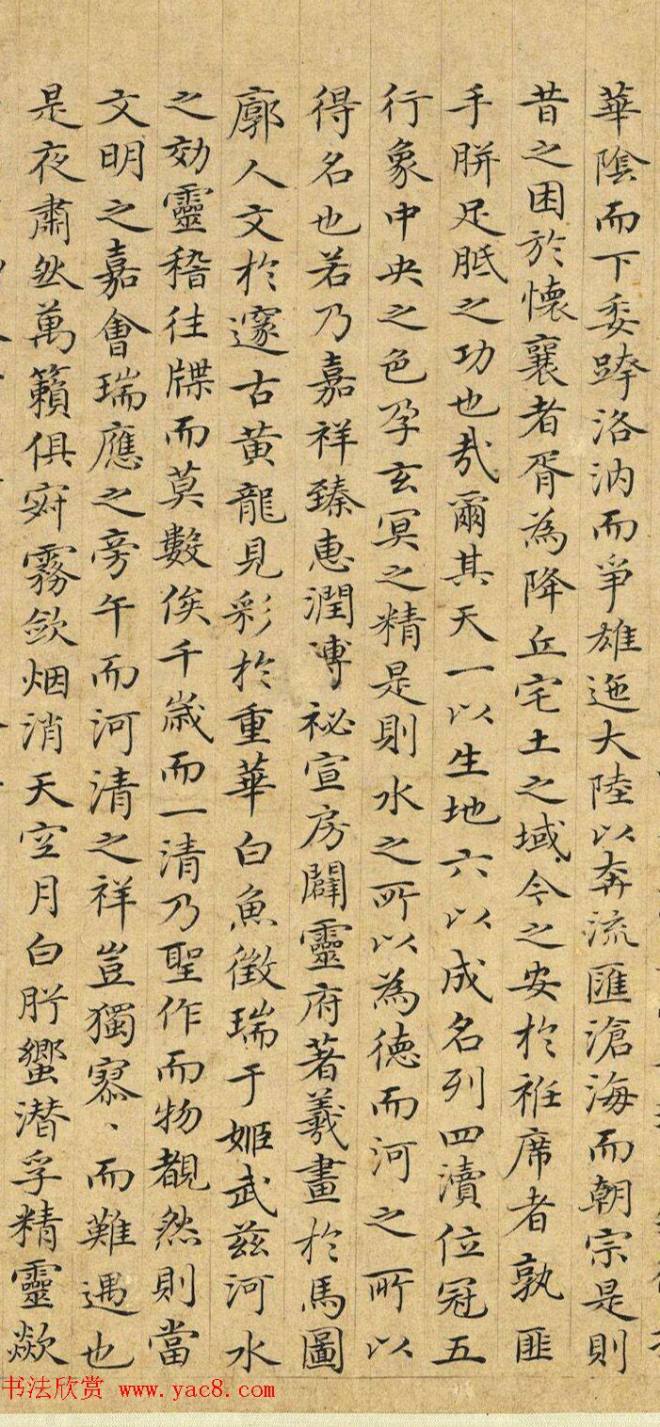 華陰而下委跨洛汭而爭雄迤大陸以奔流匯滄海而朝宗是則
昔之困於懷襄者胥為降丘宅土之域今之安於袵席者孰匪
手胼足胝之功也哉爾其天一以生地六以成名列四瀆位冠五
行象中央之色孕玄冥之精是則水之所以為德而河之所以
得名也若乃嘉祥臻惠潤溥祕宣房闢靈府著羲畫於馬圖
廓人文於邃古黃龍見彩於重華白魚徵瑞于姬武茲河水
之効靈稽往牒而莫數俟千歲而一清乃聖作而物覩然則當
文明之嘉會瑞應之旁午而河清之祥豈獨寡、而難遇也
是夜肅然萬籟俱寂霧斂烟消天空月白肸蠁潛孚精靈歘
书法欣赏 www.yac8.com